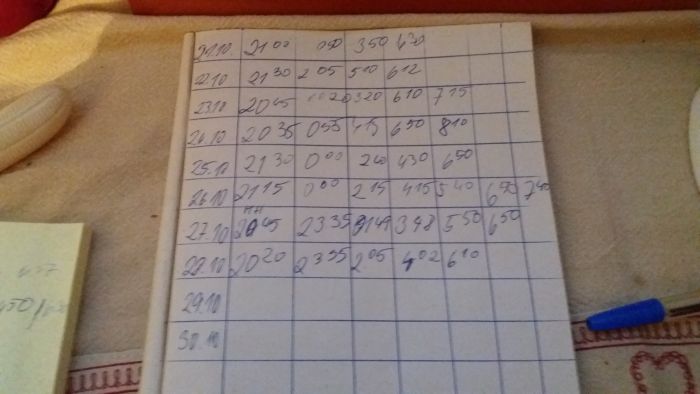 21.10 21 00 0 50 3 50 4 30
22.10 21 30 2 05 5 10 6 12
23.10 20 45 3 20 6 10 7 15
24.10 20 35 0 55 4 15 6 50 8 10
25.10 21 30 0 00 2 40 4 30 6 50
26.10 21 15 0 00 2 15 4 15 5 40 6 50 7 40
27.10 20 45 23 35 3 48 5 50 6 50
28.10 20 20 23 35 2 05 4 02 6 10
29.10
30.10